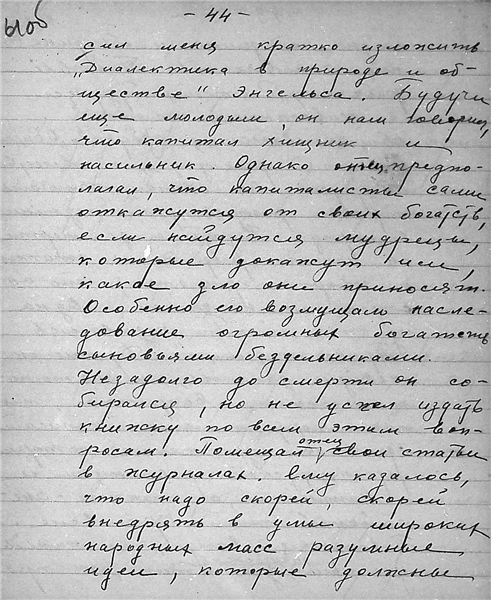 - 44 -
сил меня кратко изложить
„Диалектика в природе и об-
ществе" Энгельса. Будучи
еще молодым, он нам говорил,
что капитал хищник и
насильник. Однако отец предпо-
лагал, что капиталисты сами
откажутся от своих богатств,
если найдутся мудрецы,
которые докажут им,
какое зло они приносят.
Особенно его возмущали насле-
дование огромных богатств
сыновьями бездельниками.
Незадолго до смерти он со-
бирался, но не успел издать
книжку по всем этим воп-
росам. Помещал отец свои статьи
в журналах. Ему казалось,
что надо скорей, скорей
внедрять в умы широких
народных масс разумные
идеи, которые должны